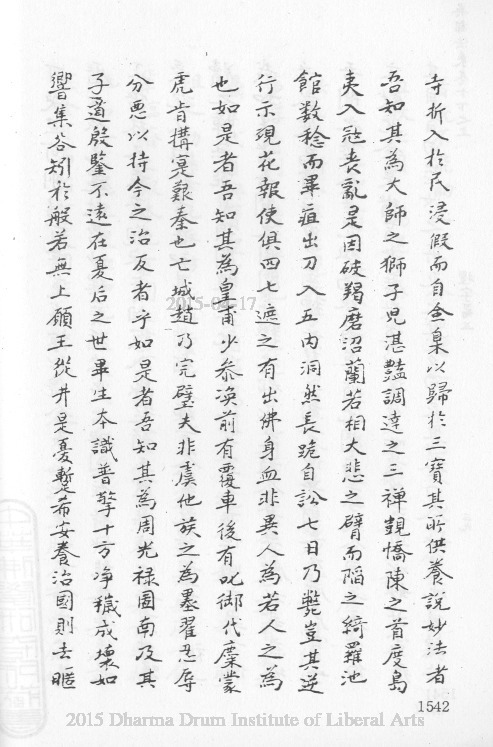 寺折入於民浸假而自僉臬以歸於三寶其所供養說妙法者
吾知其為大師之獅子兒湛豔調達之三禪覬憍陳之首度島
夷入寇喪亂是因破羯磨沼蘭若相大悲之臂而陷之綺羅池
館数稔而畢疽出刀入五内洞然長跪自訟七日乃斃豈其逆
行示現花報使俱四七遮之有出佛身血非異人為若人之為
也如是者吾知其為皇甫少叅渙前有覆車後有叱御代麋蒙
虎肯搆寔艱秦也亡城趙乃完璧夫非虞他族之為墨翟忍辱
分悪以持今之治反者乎如是者吾知其為周光禄圖南及其
子遁殷鑒不遠在憂后之世畢生本識普擎十方净穢成壊如
響集答矧於般若無上願王從井是憂蹔希安養治國則去暱
1542
2015-04-17
2015 Dharma Drum Institute of Liberal Arts